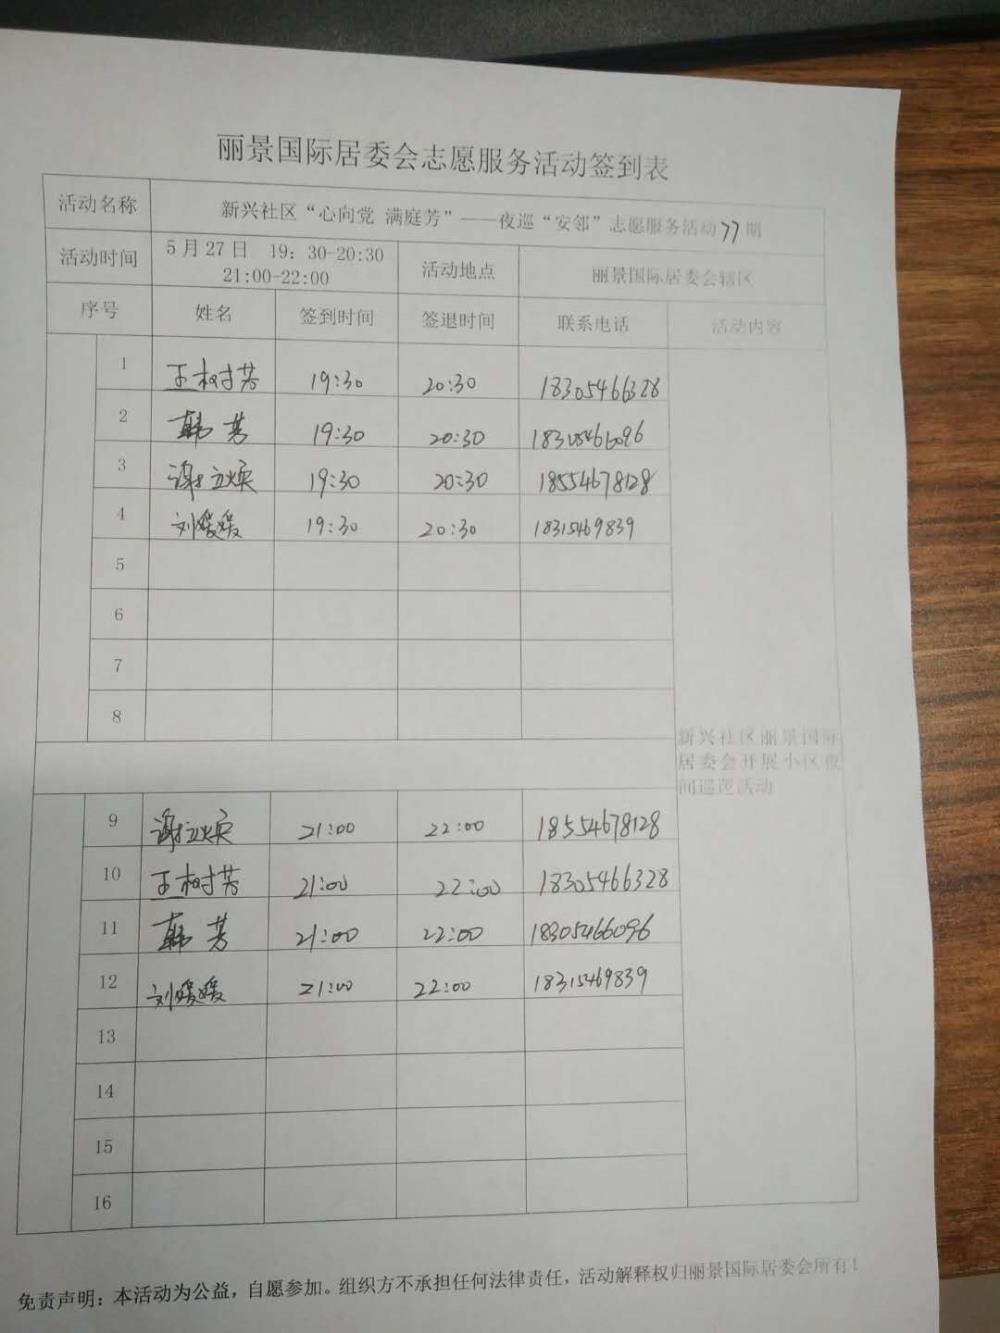 丽景国际居委会志愿服务活动签到表
活动名称 新兴社区“心向党 满庭芳”——夜巡“安邻”志愿服务活动77期
活动时间 5月27日 19：30-20:30 21:00-22:00 活动地点 丽景国际居委会辖区
序号 姓名 签到时间 签退时间 联系电话 活动内容
1 王树芳 19:30 20:30 18305466328
2 韩芳 19:30 20:30 18305466096
3 谢立焕 19:30 20:30 18554678128
4 刘媛媛 19:30 20:30 18315469839
5
6
7
8
新兴社区丽景国际
居委会开展小区夜
间巡逻活动
9 谢立焕 21:00 22:00 18554678128
10 王树芳 21:00 22:00 18305466328
11 韩芳 21:00 22:00 18305466096
12 刘媛媛 21:00 22:00 18315469839
13
14
15
16
免责声明：本活动为公益，自愿参加。组织方不承担任何法律责任，活动解释权归丽景国际居委会所有！